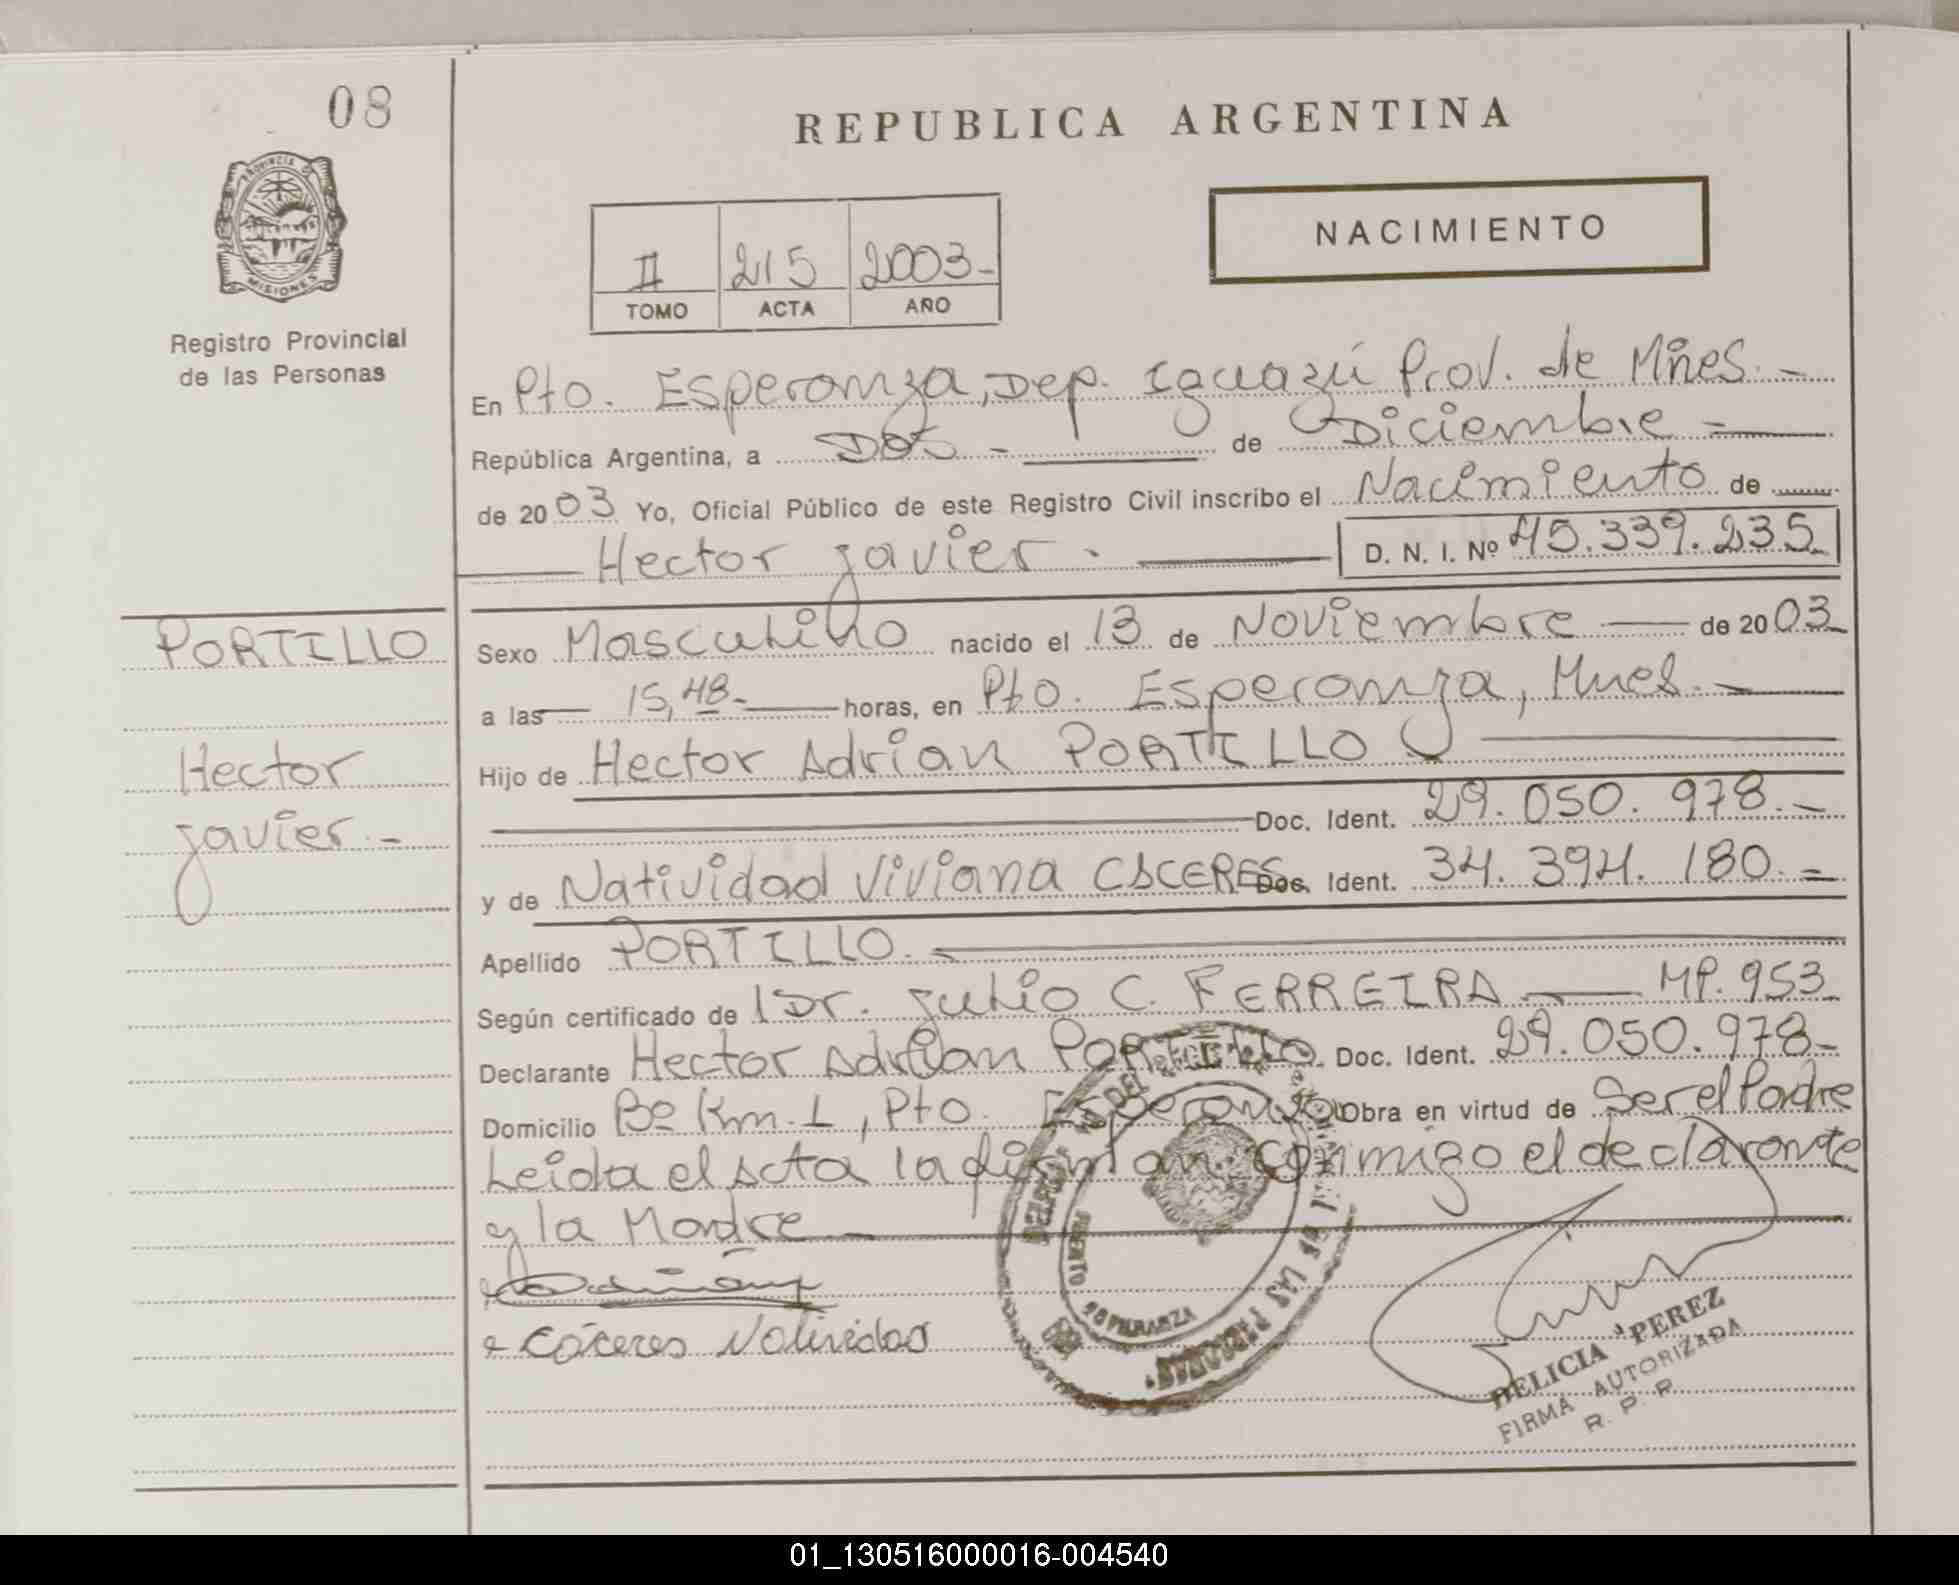 08
REPUBLICA ARGENTINA
PROVINCIA DE
MISIONES
NACIMIENTO
II 215 2003-
TOMO ACTA AÑO
Registro Provincial
de las Personas
En Pto. Esperanza, Dep. Iguazú Prov. de Mnes. -
República Argentina, a DOS - de Diciembre -
de 20 03 Yo, Oficial Público de este Registro Civil inscribo el Nacimiento de
Hector Javier. D. N. I. Nº 45.339.235
PORTILLO
Hector
Javier. -
Sexo Masculino nacido el 13 de Noviembre de 20 03
a las 15,48- horas, en Pto. Esperanza, Mnes. -
Hijo de Hector Adrian PORTILLO
Doc. Ident. 29.050.978. -
y de Natividad Viviana CACERES Doc. Ident. 34.394.180. -
Apellido PORTILLO. -
Según certificado de l Dr. Julio C. FERREIRA MP. 953
Declarante Hector Adrian PORTILLO. Doc. Ident. 29.050.978-
Domicilio Bº Km. 1, Pto. Esperanza Obra en virtud de Ser el Padre
Leida el Acta la firman conmigo el declarante
y la Madre
Cáceres Natividad
DE LAS PERSONAS
ESPERANZA
DELICIA PEREZ
FIRMA AUTORIZADA
R. P. P.
01_130516000016-004540